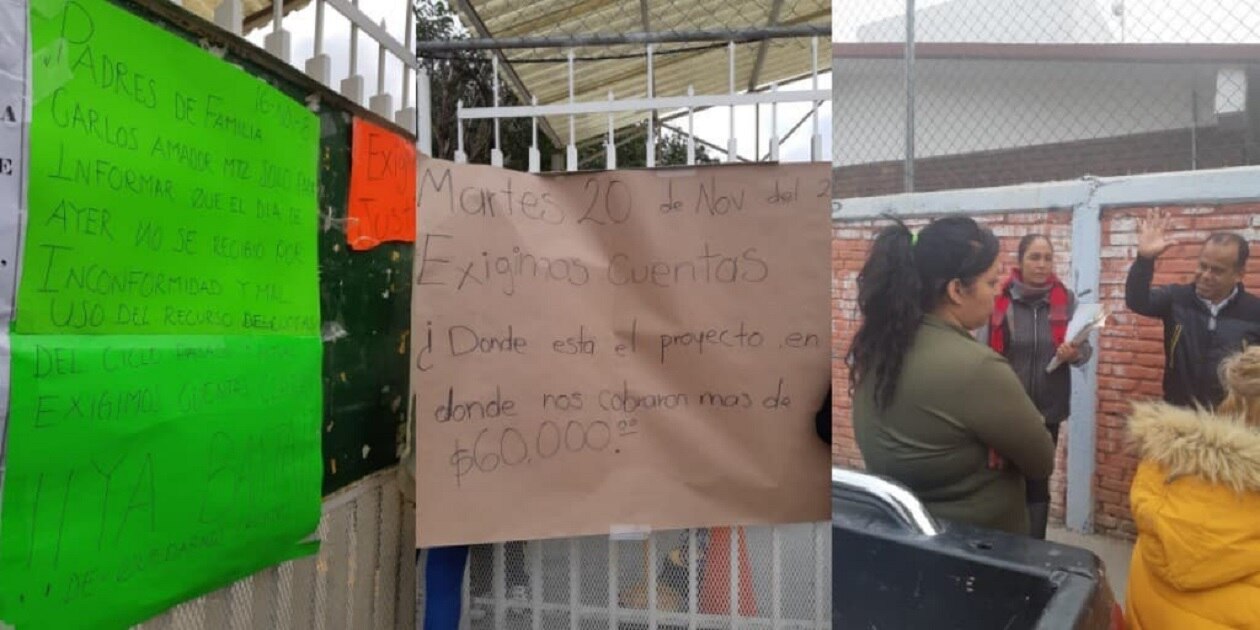 A
E
PADRES DE FAMILIA
CARLOS AMADOR MTZ SOLO
INFORMAR QUE EL DIA DE
AYER NO SE RECIBIO POR
INCONFORMIDAD Y MAL
USO DEL RECURSO
DEL CICLO
EXIGIMOS CUENTAS
¡¡YA
Martes 20 de Nov del 2
Exigimos cuentas
¿Donde esta el proyecto en
donde nos cobraron mas de
$60.000.00